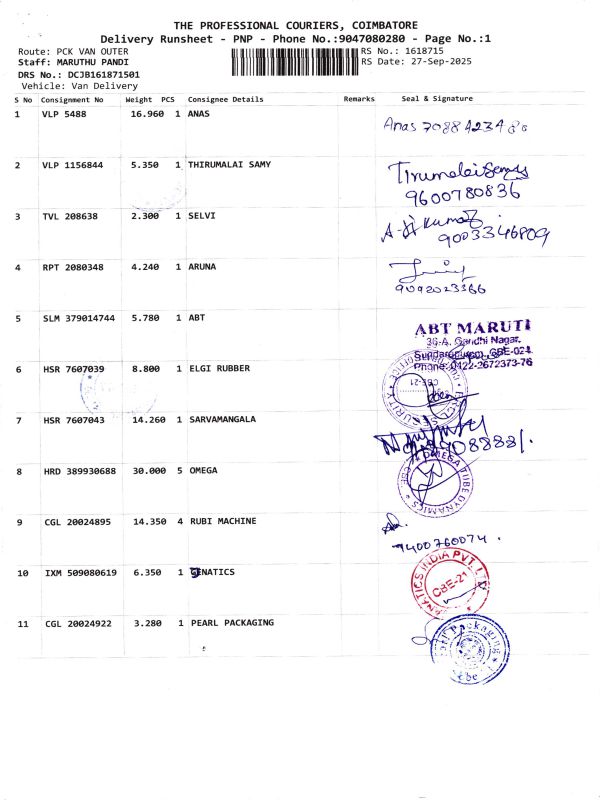 THE PROFESSIONAL COURIERS, COIMBATORE
Delivery Runsheet - PNP - Phone No.:9047080280 - Page No.:1
Route: PCK VAN OUTER RS No.: 1618715
Staff: MARUTHU PANDI RS Date: 27-Sep-2025
DRS No.: DCJB161871501
Vehicle: Van Delivery
S No Consignment No Weight PCS Consignee Details Remarks Seal & Signature
1 VLP 5488 16.960 1 ANAS
Anas
2 VLP 1156844 5.350 1 THIRUMALAI SAMY
Tirumalai
9600780836
3 TVL 208638 2.300 1 SELVI
9003346809
4 RPT 2080348 4.240 1 ARUNA
9092023366
5 SLM 379014744 5.780 1 ABT
ABT MARUTI
36-A, Gandhi Nagar,
Sundarapuram, CBE-024
Phone: 0422-2672373-76
6 HSR 7607039 8.800 1 ELGI RUBBER
SECURITY OFFICE
CBE-21
7 HSR 7607043 14.260 1 SARVAMANGALA
8 HRD 389930688 30.000 5 OMEGA
OMEGA TUBE DYNAMICS
CBE.
9 CGL 20024895 14.350 4 RUBI MACHINE
9400760074.
10 IXM 509080619 6.350 1 GENATICS
NATICS INDIA PVT. LTD
CBE-21
11 CGL 20024922 3.280 1 PEARL PACKAGING
Pearl Packaging
Cbe